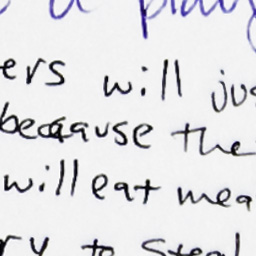 a play
ers will jus
because the
will eat mea
ry to steal